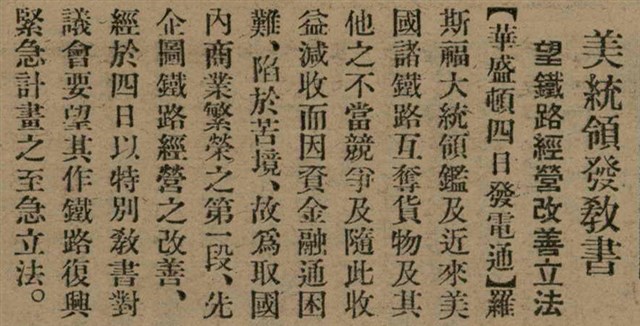 美統領發敎書
望鐵路經營改善立法
【華盛頓四日發電通】羅
斯福大統領鑑及近來美
國諸鐵路互奪貨物及其
他之不當競爭及隨此收
益減收而因資金融通困
難、陷於苦境、故爲取國
內商業繁榮之第一段、先
企圖鐵路經營之改善、
經於四日以特別敎書對
議會要望其作鐵路復興
緊急計畫之至急立法。